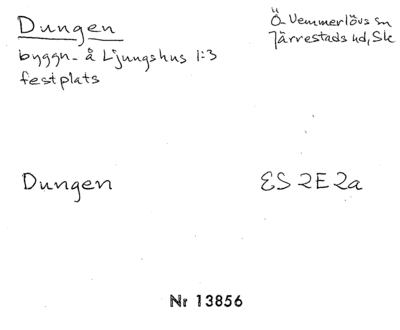 Dungen
byggn. å Ljungshus 1:3
festplats
Ö Vemmerlövs sn
Järrestads hd, Sk
Dungen
ES 2E 2a
Nr 13856